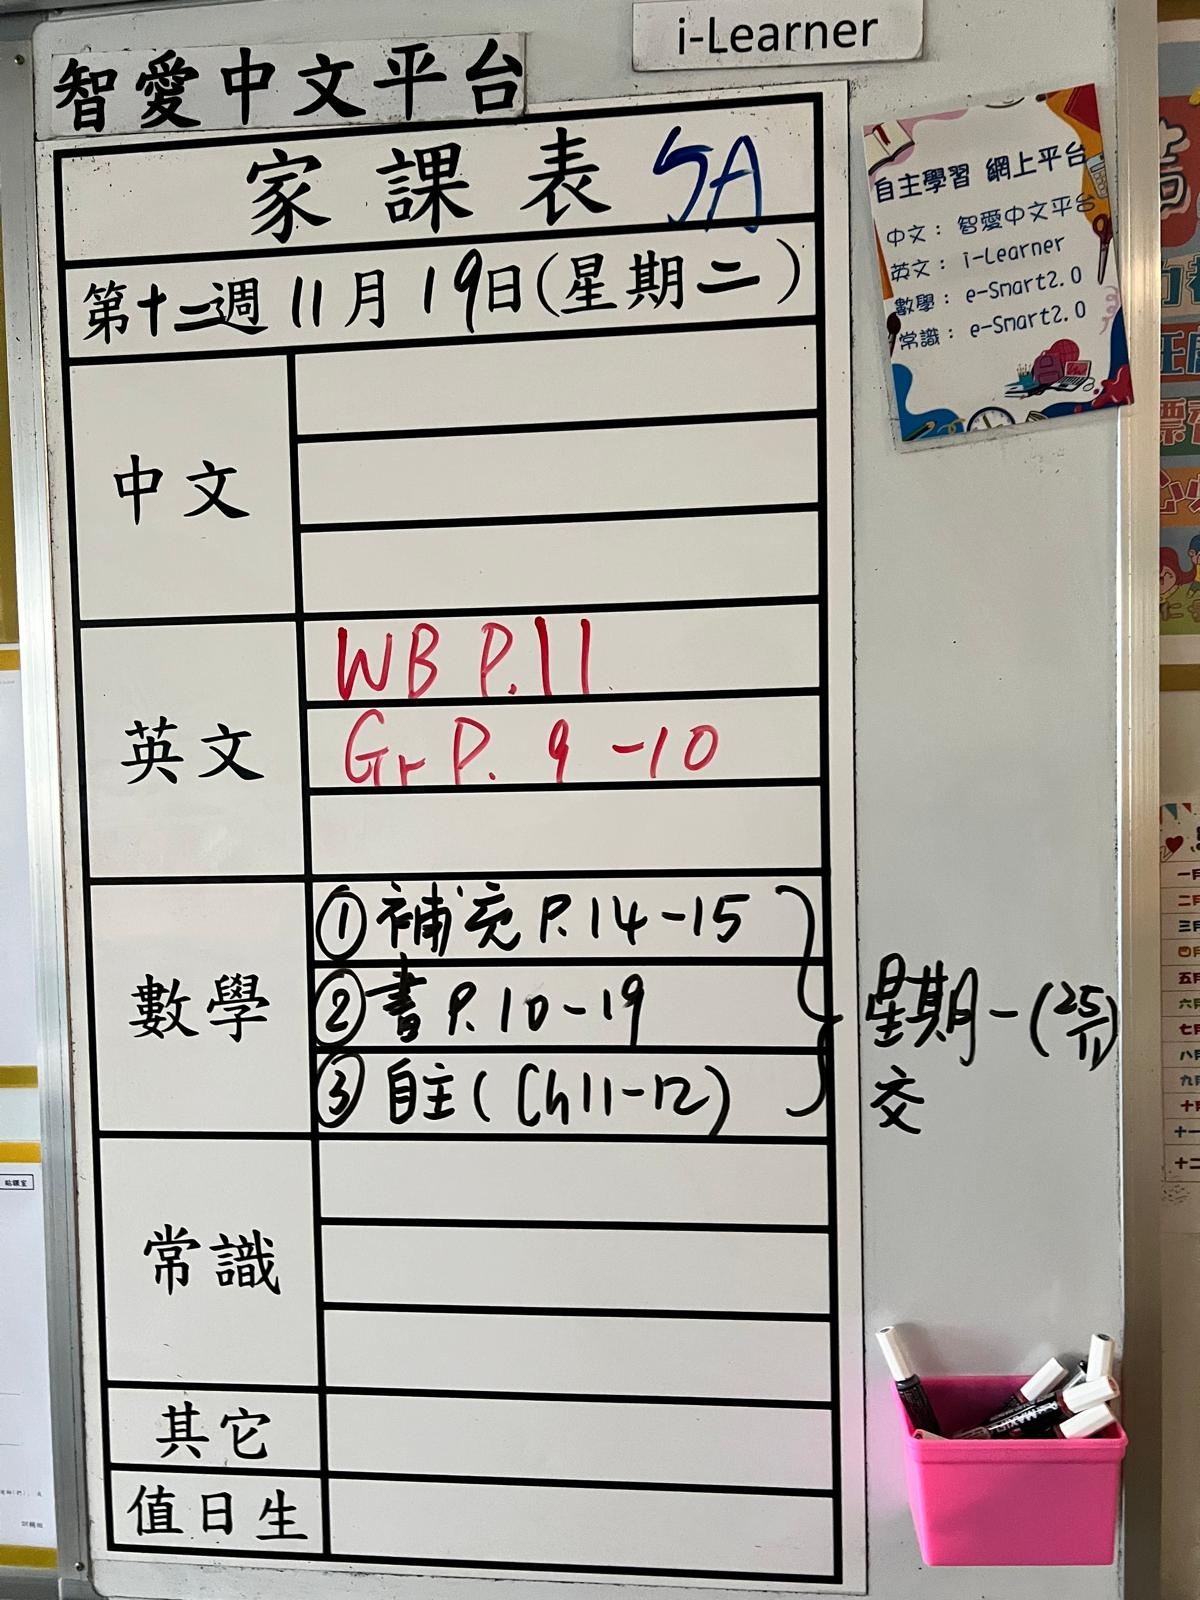 i-Learner
智愛中文平台
家課表 5A
第十二週 11月19日(星期二)
中文
英文
WB P.11
Gr P. 9-10
數學
① 補充 P.14-15
② 書 P.10-19
③ 自主(Ch11-12)
星期一(25/11)
交
常識
其它
值日生
自主學習 網上平台
中文： 智愛中文平台
英文： i-Learner
數學： e-Smart2.0
常識： e-Smart2.0